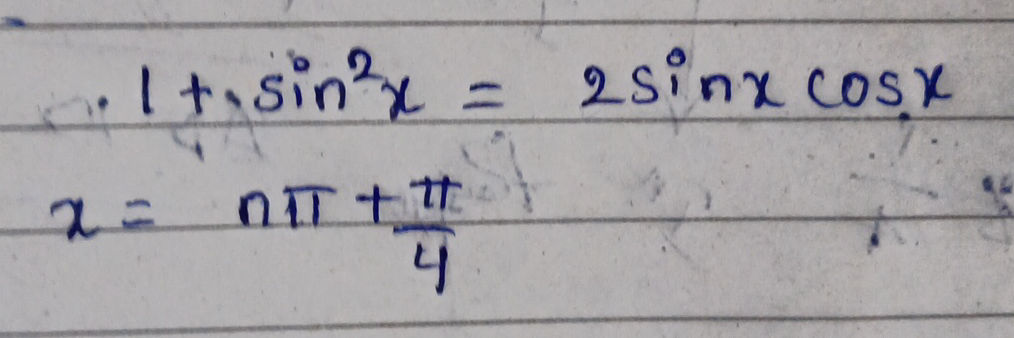 1 + sin²x = 2 sinx cosx
x = nπ + π/4